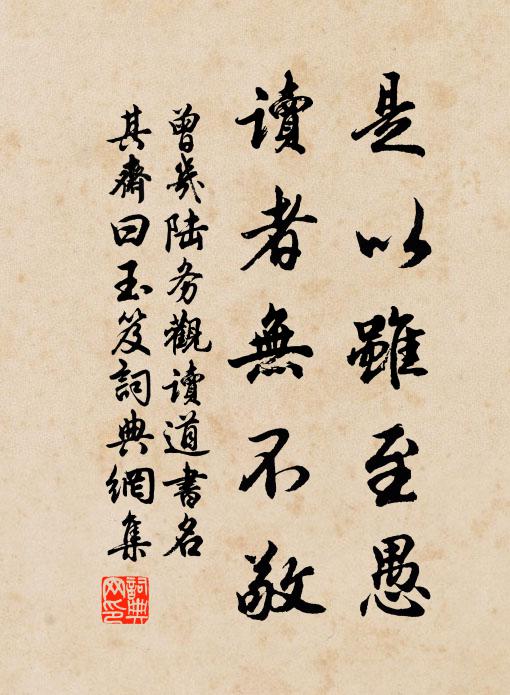 是以雖至愚
讀者無不敬
曾幾陸务觀讀道書名
其齋曰玉笈詞典網集
詞典網印